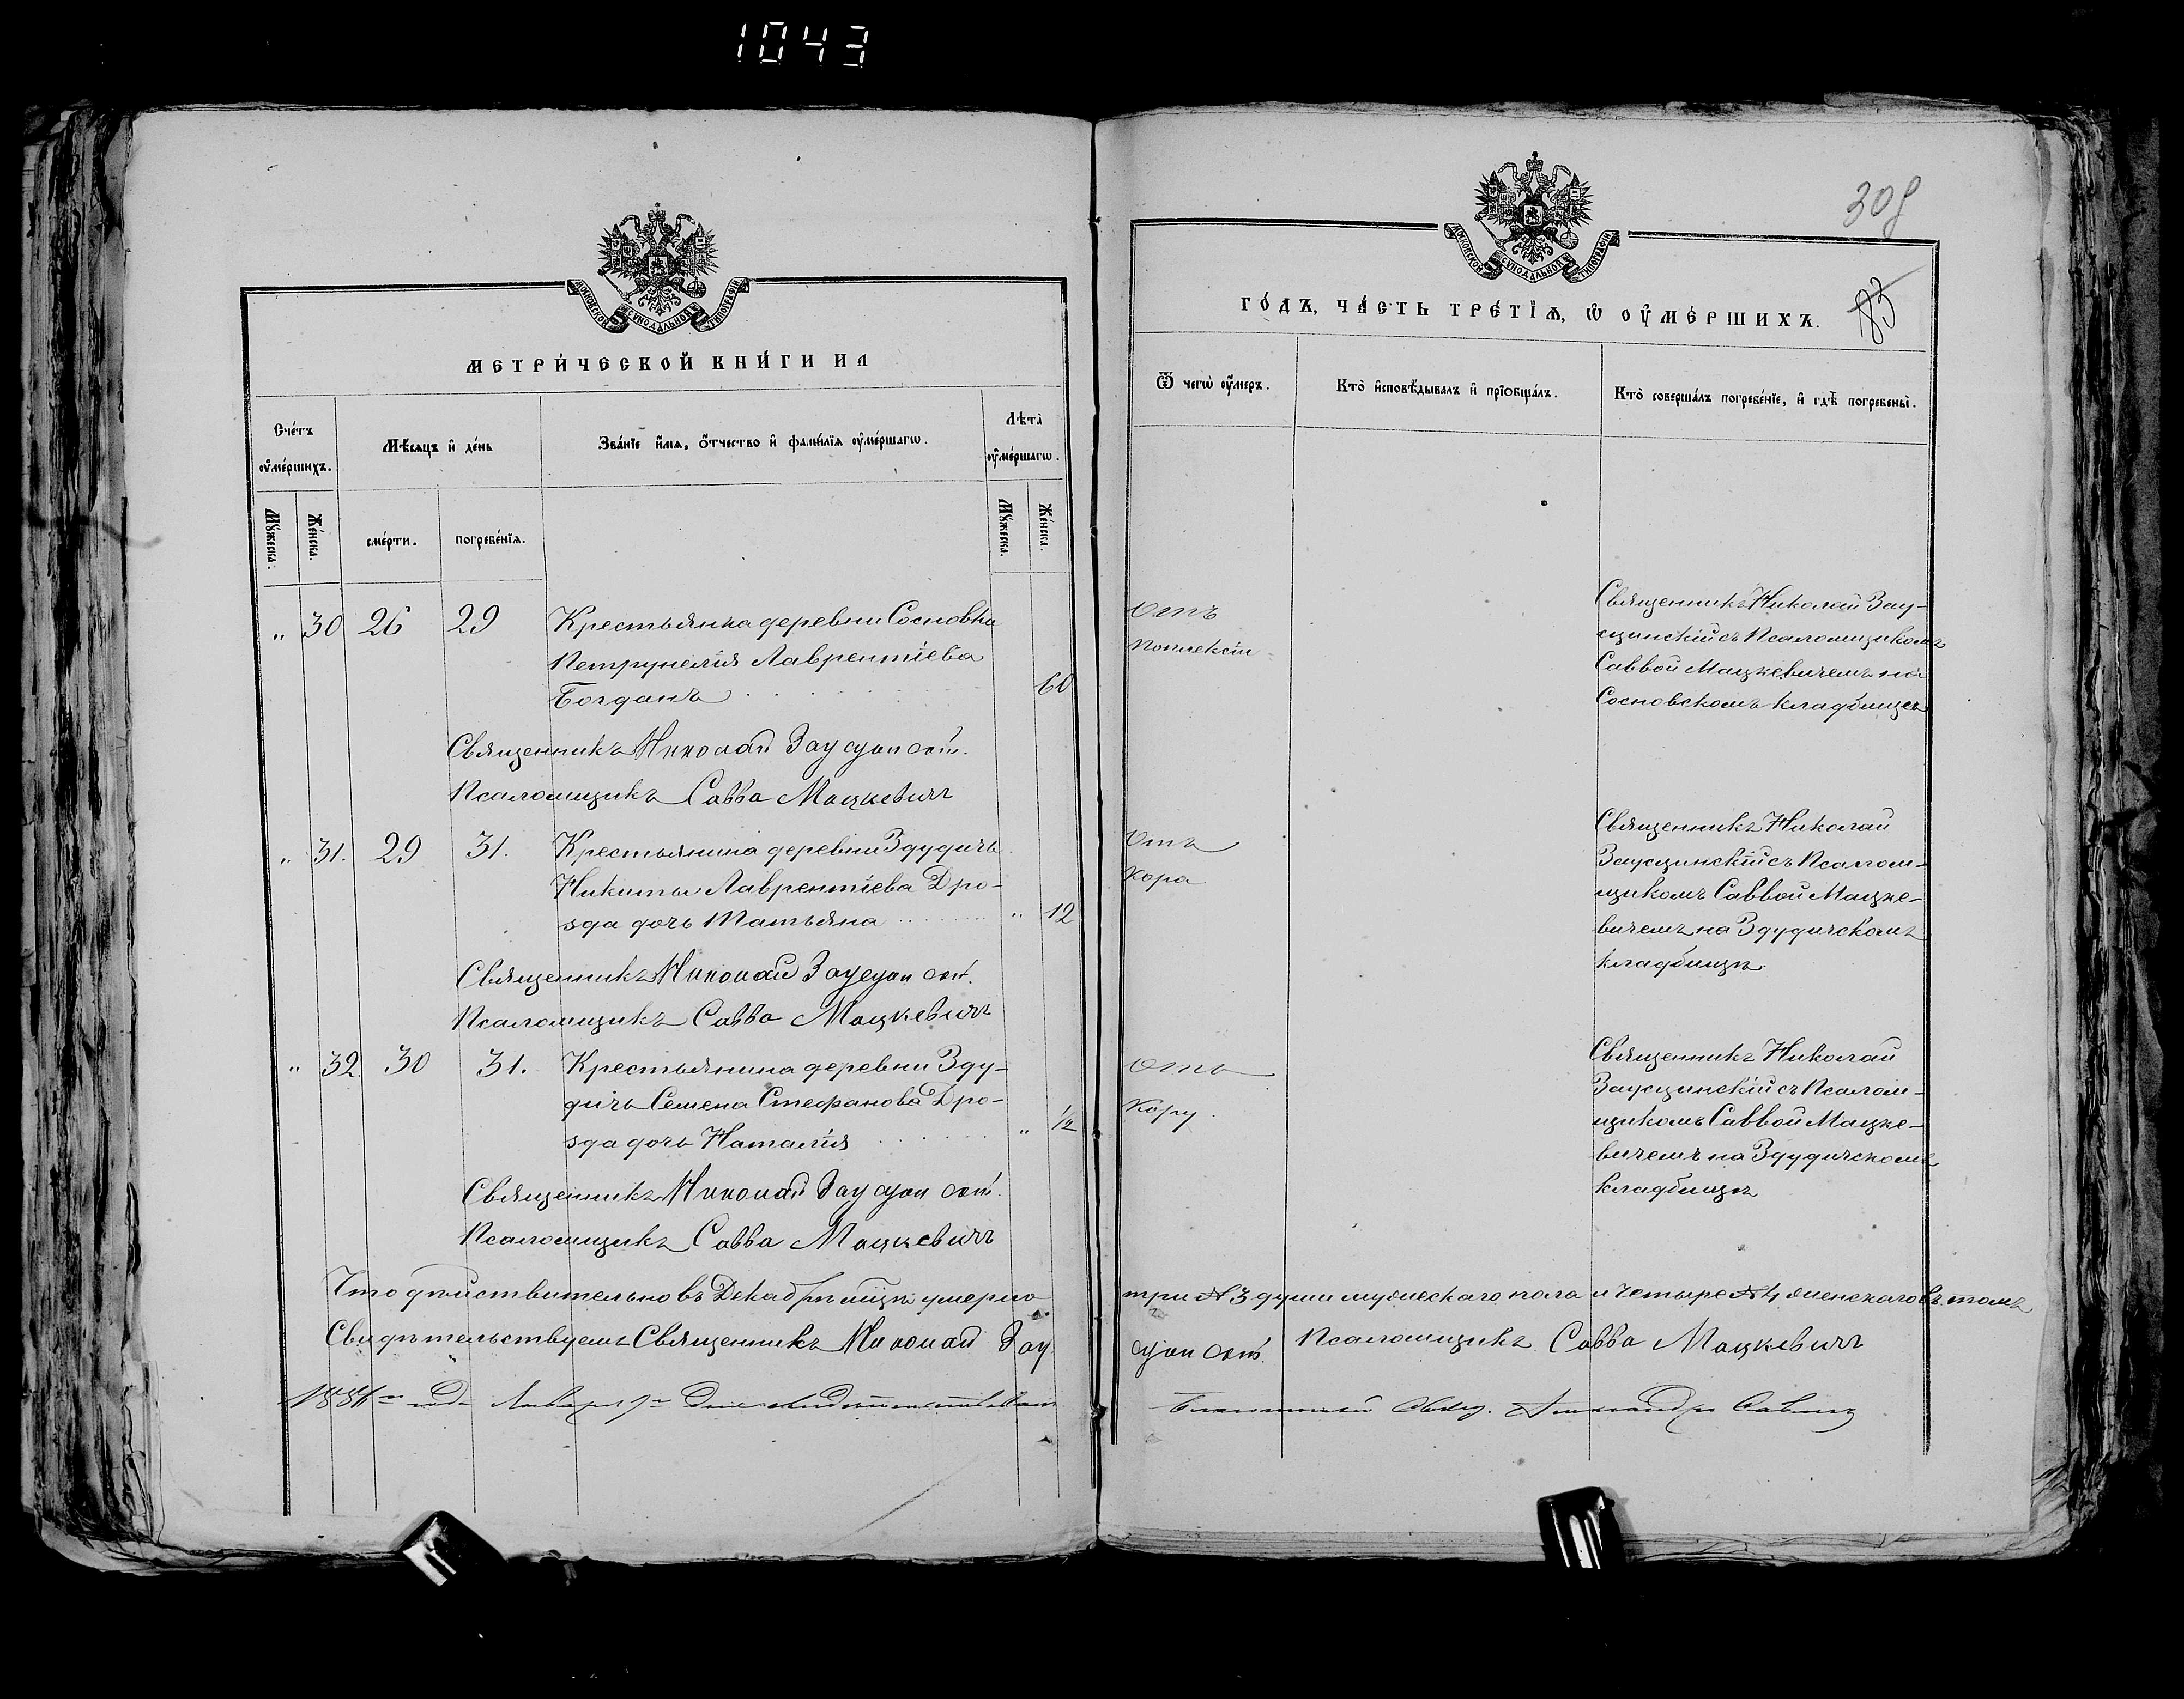 1043
МОСКОВСКОЙ СУНОДАЛЬНОЙ ТИПОГРАФІИ
МЕТРИ́ЧЕСКОЙ КНИ́ГИ НА
Сче́тъ оу҆ме́ршихъ.
Мѣ́сяцъ и҆ де́нь
Зва́нїе и҆́мѧ, ѻ҆́тчество и҆ фамі́лїѧ оу҆ме́ршагѡ.
Лѣта̀ оу҆ме́ршагѡ.
Мꙋ́жеска.
Же́нска.
сме́рти.
погребе́нїѧ.
Мꙋ́жеска.
Же́нска.
„ 30 26 29 Крестьянка деревни Сосновка
Петрунелія Лаврентіева
Богданъ 60
Священникъ Николай Заусцинскій.
Псаломщикъ Савва Мацкевичъ
„ 31. 29 31. Крестьянина деревни Здудичъ
Никиты Лаврентіева Дро-
зда дочь Татьяна „ 12
Священникъ Николай Заусцинскій.
Псаломщикъ Савва Мацкевичъ
„ 32. 30 31. Крестьянина деревни Зду-
дичъ Семена Стефанова Дро-
зда дочь Наталія „ 1/2
Священникъ Николай Заусцинскій.
Псаломщикъ Савва Мацкевичъ
Что дѣйствительно въ Декабрѣ мцѣ умерло
Свидѣтельствуемъ Священникъ Николай Зау
1886го года Января
308
МОСКОВСКОЙ СУНОДАЛЬНОЙ ТИПОГРАФІИ
ГО́ДЪ, ЧА́СТЬ ТРЕ́ТЇѦ, Ѡ҆ ОУ҆МЕ́РШИХЪ.
83
Ѿ чегѡ̀ оу҆́меръ.
Кто̀ и҆сповѣ́дывалъ и҆ прїобща́лъ.
Кто̀ соверша́лъ погребе́нїе, и҆ гдѣ̀ погребены̀.
Отъ
поплексіи
Священникъ Николай Зау-
сцинскій съ Псаломщикомъ
Саввой Мацкевичемъ на
Сосновскомъ кладбищѣ
Отъ
кора
Священникъ Николай
Заусцинскій съ Псалом-
щикомъ Саввой Мацке-
вичемъ на Здудичскомъ
кладбищѣ.
Отъ
кору.
Священникъ Николай
Заусцинскій съ Псалом-
щикомъ Саввой Мацке-
вичемъ на Здудичскомъ
кладбищѣ
три № 3 души мужескаго пола и четыре № 4 женскаго въ томъ
сцинскій. Псаломщикъ Савва Мацкевичъ
Свящ. Александръ